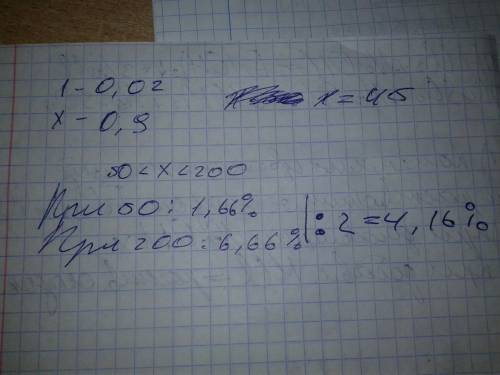 1 - 0,02
x - 0,9
x = 45
50 < x < 200
При 50: 1,66%
При 200: 6,66% | : 2 = 4,16%